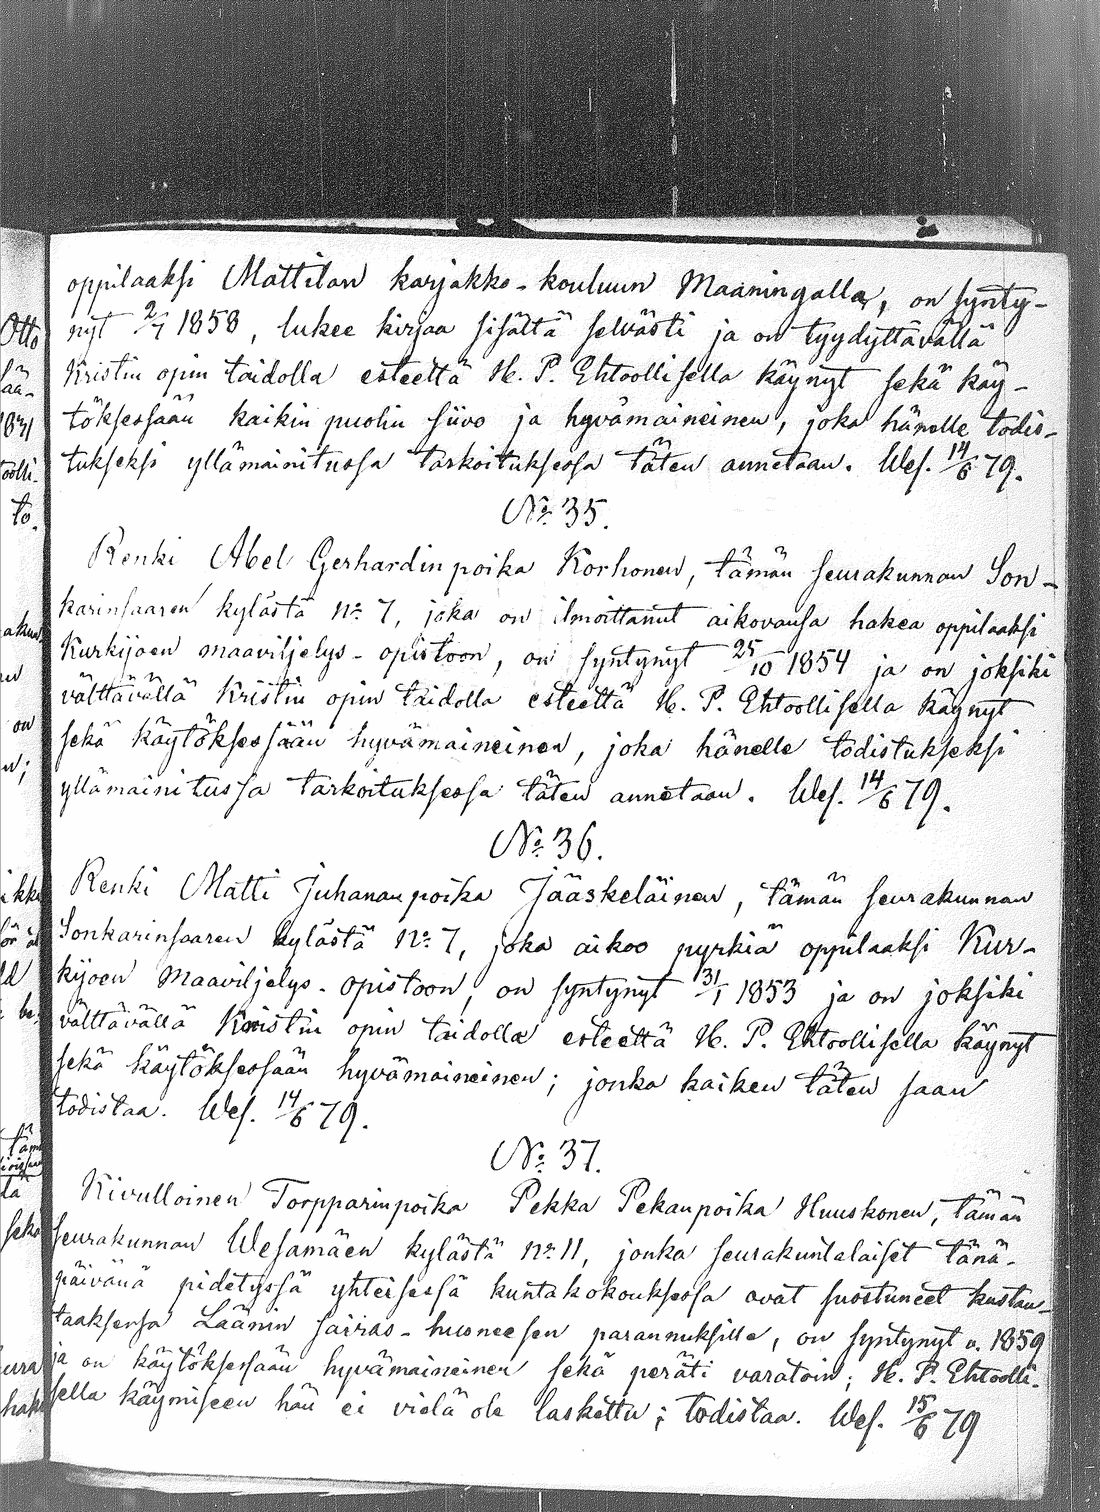 oppilaaksi Mattilan karjakko-kouluun Maaningalla, on synty-
nyt 2/7 1858, lukee kirjaa sisältä selvästi ja on tyydyttävällä
Kristin opin taidolla esteettä H. P. Ehtoollisella käynyt sekä käy-
töksessään kaikin puolin siivo ja hyvämaineinen, joka hänelle todis-
tukseksi yllämainitussa tarkoituksessa täten annetaan. Wes. 14/6 79.
No 35.
Renki Abel Gerhardinpoika Korhonen, tämän seurakunnan Son-
karinsaaren kylästä No 7, joka on ilmoittanut aikovansa hakea oppilaaksi
Kurkijoen maaviljelys-opistoon, on syntynyt 25/10 1854 ja on joksiki
välttävällä Kristin opin taidolla esteettä H. P. Ehtoollisella käynyt
sekä käytöksessään hyvämaineinen, joka hänelle todistukseksi
yllämainitussa tarkoituksessa täten annetaan. Wes. 14/6 79.
No 36.
Renki Matti Juhananpoika Jääskeläinen, tämän seurakunnan
Sonkarinsaaren kylästä No 7, joka aikoo pyrkiä oppilaaksi Kur-
kijoen Maaviljelys-opistoon, on syntynyt 31/1 1853 ja on joksiki
välttävällä Kristin opin taidolla esteettä H. P. Ehtoollisella käynyt
sekä käytöksessään hyvämaineinen; jonka kaiken täten saan
todistaa. Wes. 14/6 79.
No 37.
Kivulloinen Torpparinpoika Pekka Pekanpoika Huuskonen, tämän
seurakunnan Wesamäen kylästä No 11, jonka seurakuntalaiset tänä-
päivänä pidetyssä yhteisessä kuntakokouksessa ovat suostuneet kustan-
taaksensa Läänin sairas-huoneesen parannuksille, on syntynyt v. 1859
ja on käytöksessään hyvämaineinen sekä peräti varatoin; H. P. Ehtoolli-
sella käymiseen hän ei vielä ole laskettu; todistaa. Wes. 15/6 79